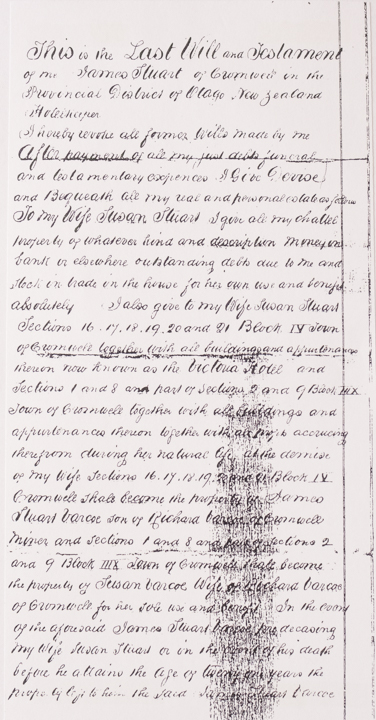 This is the Last Will and Testament
of me James Stuart of Cromwell in the
Provincial District of Otago New Zealand
Hotelkeeper
I hereby revoke all former Wills made by me
After payment of all my just debts funeral
and testamentary expences I Give Devise
and Bequeath all my real and personal estate as follows
To my Wife Susan Stuart I give all my chattel
property of whatever kind and description Money in
bank or elsewhere outstanding debts due to me and
stock in trade in the house for her own use and benefit
absolutely I also give to my Wife Susan Stuart
Sections 16. 17. 18. 19. 20 and 21 Block IV Town
of Cromwell together with all buildings and appurtenances
thereon now known as the Victoria Hotel and
Sections 1 and 8 and part of Sections 2 and 9 Block
Town of Cromwell together with all buildings and
appurtenances thereon together with all accruing
therefrom during her natural life at the demise
of my Wife Sections 16. 17. 18. 19. 20 and 21 Block IV
Cromwell shall become the property of James
Stuart Varcoe Son of Richard Varcoe of Cromwell
Miner and Sections 1 and 8 and part of Sections 2
and 9 Block Town of Cromwell shall become
the property of Susan Varcoe Wife of Richard Varcoe
of Cromwell for her sole use and benefit In the event
of the aforesaid James Stuart Varcoe predeceasing
my Wife Susan Stuart or in the event of his death
before he attains the age of twenty one years the
property left to him the said James Stuart Varcoe